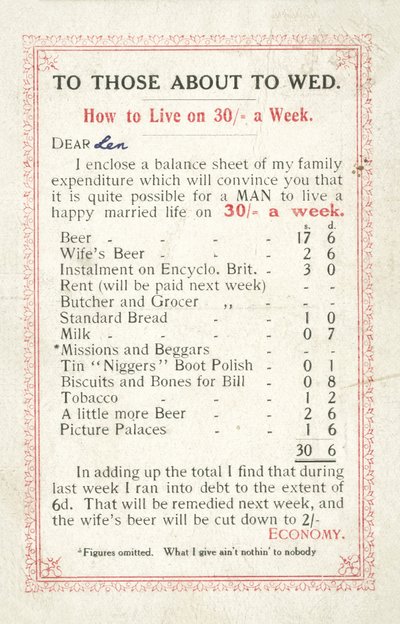 TO THOSE ABOUT TO WED.
How to Live on 30/= a Week.
DEAR Len
I enclose a balance sheet of my family
expenditure which will convince you that
it is quite possible for a MAN to live a
happy married life on 30/= a week.
s. d.
Beer - - - - 17 6
Wife's Beer - - - 2 6
Instalment on Encyclo. Brit. - 3 0
Rent (will be paid next week) - -
Butcher and Grocer ,, - - -
Standard Bread - - 1 0
Milk - - - - 0 7
*Missions and Beggars - - - -
Tin "Niggers" Boot Polish - 0 1
Biscuits and Bones for Bill - 0 8
Tobacco - - - 1 2
A little more Beer - - 2 6
Picture Palaces - - 1 6
30 6
In adding up the total I find that during
last week I ran into debt to the extent of
6d. That will be remedied next week, and
the wife's beer will be cut down to 2/-
ECONOMY.
*Figures omitted. What I give ain't nothin' to nobody